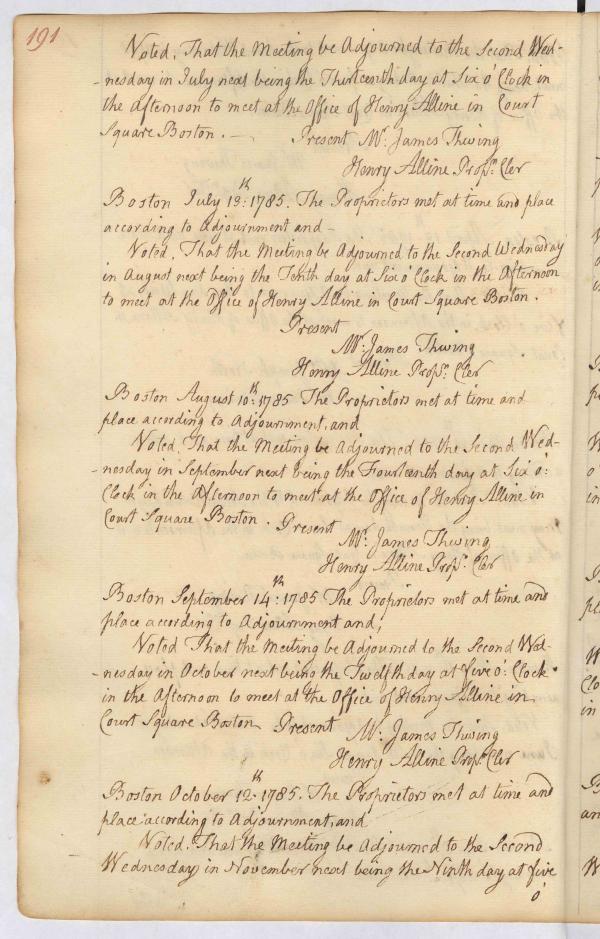 191
Voted, That the Meeting be Adjourned to the Second Wed-
-nesday in July next being the Thirteenth day at Six o' Clock in
the afternoon to meet at the Office of Henry Alline in Court
Square Boston. — Present Mr. James Thwing
Henry Alline Props. Cler
Boston July 13th: 1785. The Proprietors met at time and place
according to Adjournment and -
Voted, That the Meeting be Adjourned to the Second Wednesday
in August next being the Tenth day at Six o' Clock in the Afternoon
to meet at the Office of Henry Alline in Court Square Boston.
Present
Mr. James Thwing
Henry Alline Props. Cler
Boston August 10th: 1785 The Proprietors met at time and
place according to Adjournment, and
Voted, That the Meeting be Adjourned to the Second Wed-
-nesday in September next being the Fourteenth day at Six o:
Clock in the Afternoon to meet at the Office of Henry Alline in
Court Square Boston. Present
Mr. James Thwing
Henry Alline Props. Cler
Boston September 14th: 1785 The Proprietors met at time and
place according to Adjournment and,
Voted That the Meeting be Adjourned to the Second Wed-
-nesday in October next being the Twelfth day at five o: Clock
in the Afternoon to meet at the Office of Henry Alline in
Court Square Boston Present Mr. James Thwing
Henry Alline Props. Cler
Boston October 12th: 1785. The Proprietors met at time and
place according to Adjournment, and
Voted. That the Meeting be Adjourned to the Second
Wednesday in November next being the Ninth day at five
o'